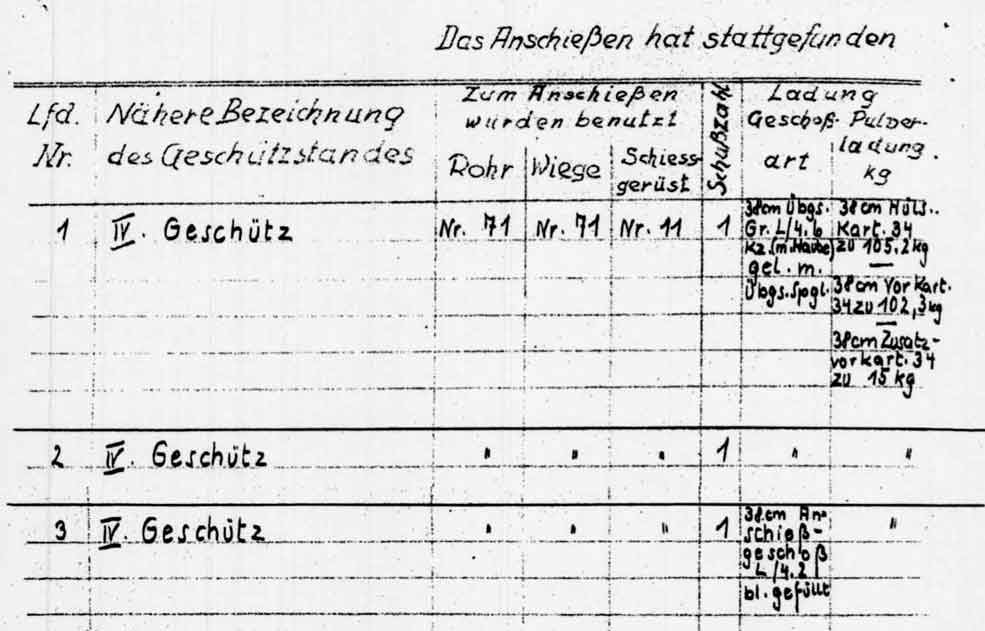 Das Anschießen hat stattgefunden
Lfd. Nr.
Nähere Bezeichnung des Geschützstandes
Zum Anschießen wurden benutzt
Rohr
Wiege
Schiess-
gerüst
Schußzahl
Ladung
Geschoß-
art
Pulver-
ladung.
kg
1
IV. Geschütz
Nr. 71
Nr. 71
Nr. 11
1
38cm Übgs.
Gr. L/4.6
Kz. (m. Haube)
gel. m.
Übgs. Spgl.
38cm Hüls..
Kart. 34
zu 105.2kg
—
38cm Vor Kart.
34 zu 102,3kg
—
38cm Zusatz-
vorkart. 34
zu 15 kg
2
IV. Geschütz
"
"
"
1
"
"
3
IV. Geschütz
"
"
"
1
38cm An-
schieß-
geschoß
L/4.2
bl. gefüllt
"